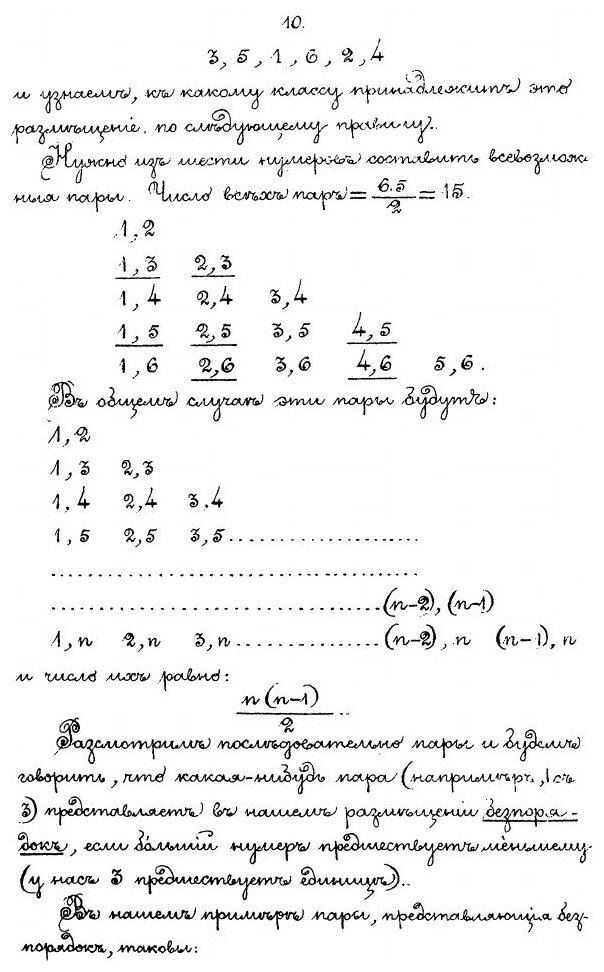 10.
3, 5, 1, 6, 2, 4
и узнаемъ, къ какому классу принадлежитъ это
размѣщеніе, по слѣдующему правилу.
Нужно изъ шести нумеровъ составить всевозмож-
ныя пары. Число всѣхъ паръ = 6.5/2 = 15.
1, 2
1, 3 2, 3
1, 4 2, 4 3, 4
1, 5 2, 5 3, 5 4, 5
1, 6 2, 6 3, 6 4, 6 5, 6.
Въ общемъ случаѣ эти пары будутъ:
1, 2
1, 3 2, 3
1, 4 2, 4 3, 4
1, 5 2, 5 3, 5......................
............................................
.......................................(n-2), (n-1)
1, n 2, n 3, n..................(n-2), n (n-1), n
и число ихъ равно:
n(n-1)/2..
Разсмотримъ послѣдовательно пары и будемъ
говорить, что какая-нибудь пара (напримѣръ, 1 съ
3) представляетъ въ нашемъ размѣщеніи безпоря-
докъ, если бо́льшій нумеръ предшествуетъ ме́ньшему
(у насъ 3 предшествуетъ единицѣ)..
Въ нашемъ примѣрѣ пары, представляющія без-
порядокъ, таковы: